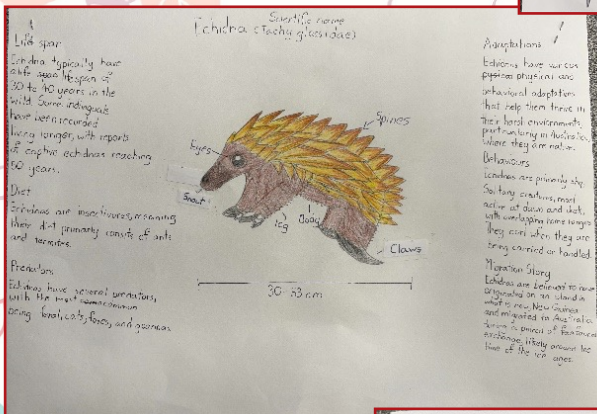 Scientific name
Echidna (Tachyglossidae)
Life span
Echidna typically have
a life span lifespan of
30 to 40 years in the
wild. Some
have been recorded
living longer, with reports
of captive echidnas reaching
50 years.
Diet
Echidnas are insectivores, meaning
their diet primarily consits of ants
and termites.
Predators
Echidnas have several predators,
with the most common
being feral, cats, foxes, and goannas
Eyes
Snout
Spines
leg
Claws
30-53 cm
Adaptations
Echidnas have various
physical and
behavioral adaptations
that help them thrive in
their environments,
particularly in Australia,
where they are native.
Behaviours
Echidnas are primarily shy,
Solitary creatures, most
active at dawn and dusk,
with overlapping home ranges
They curl when they are
being carried or handled.
Migration Story
Echidnas are believed to have
originated on an island in
what is now, New Guinea
and migrated to Australia
during a of
exchange, likely around the
time of the ice ages.